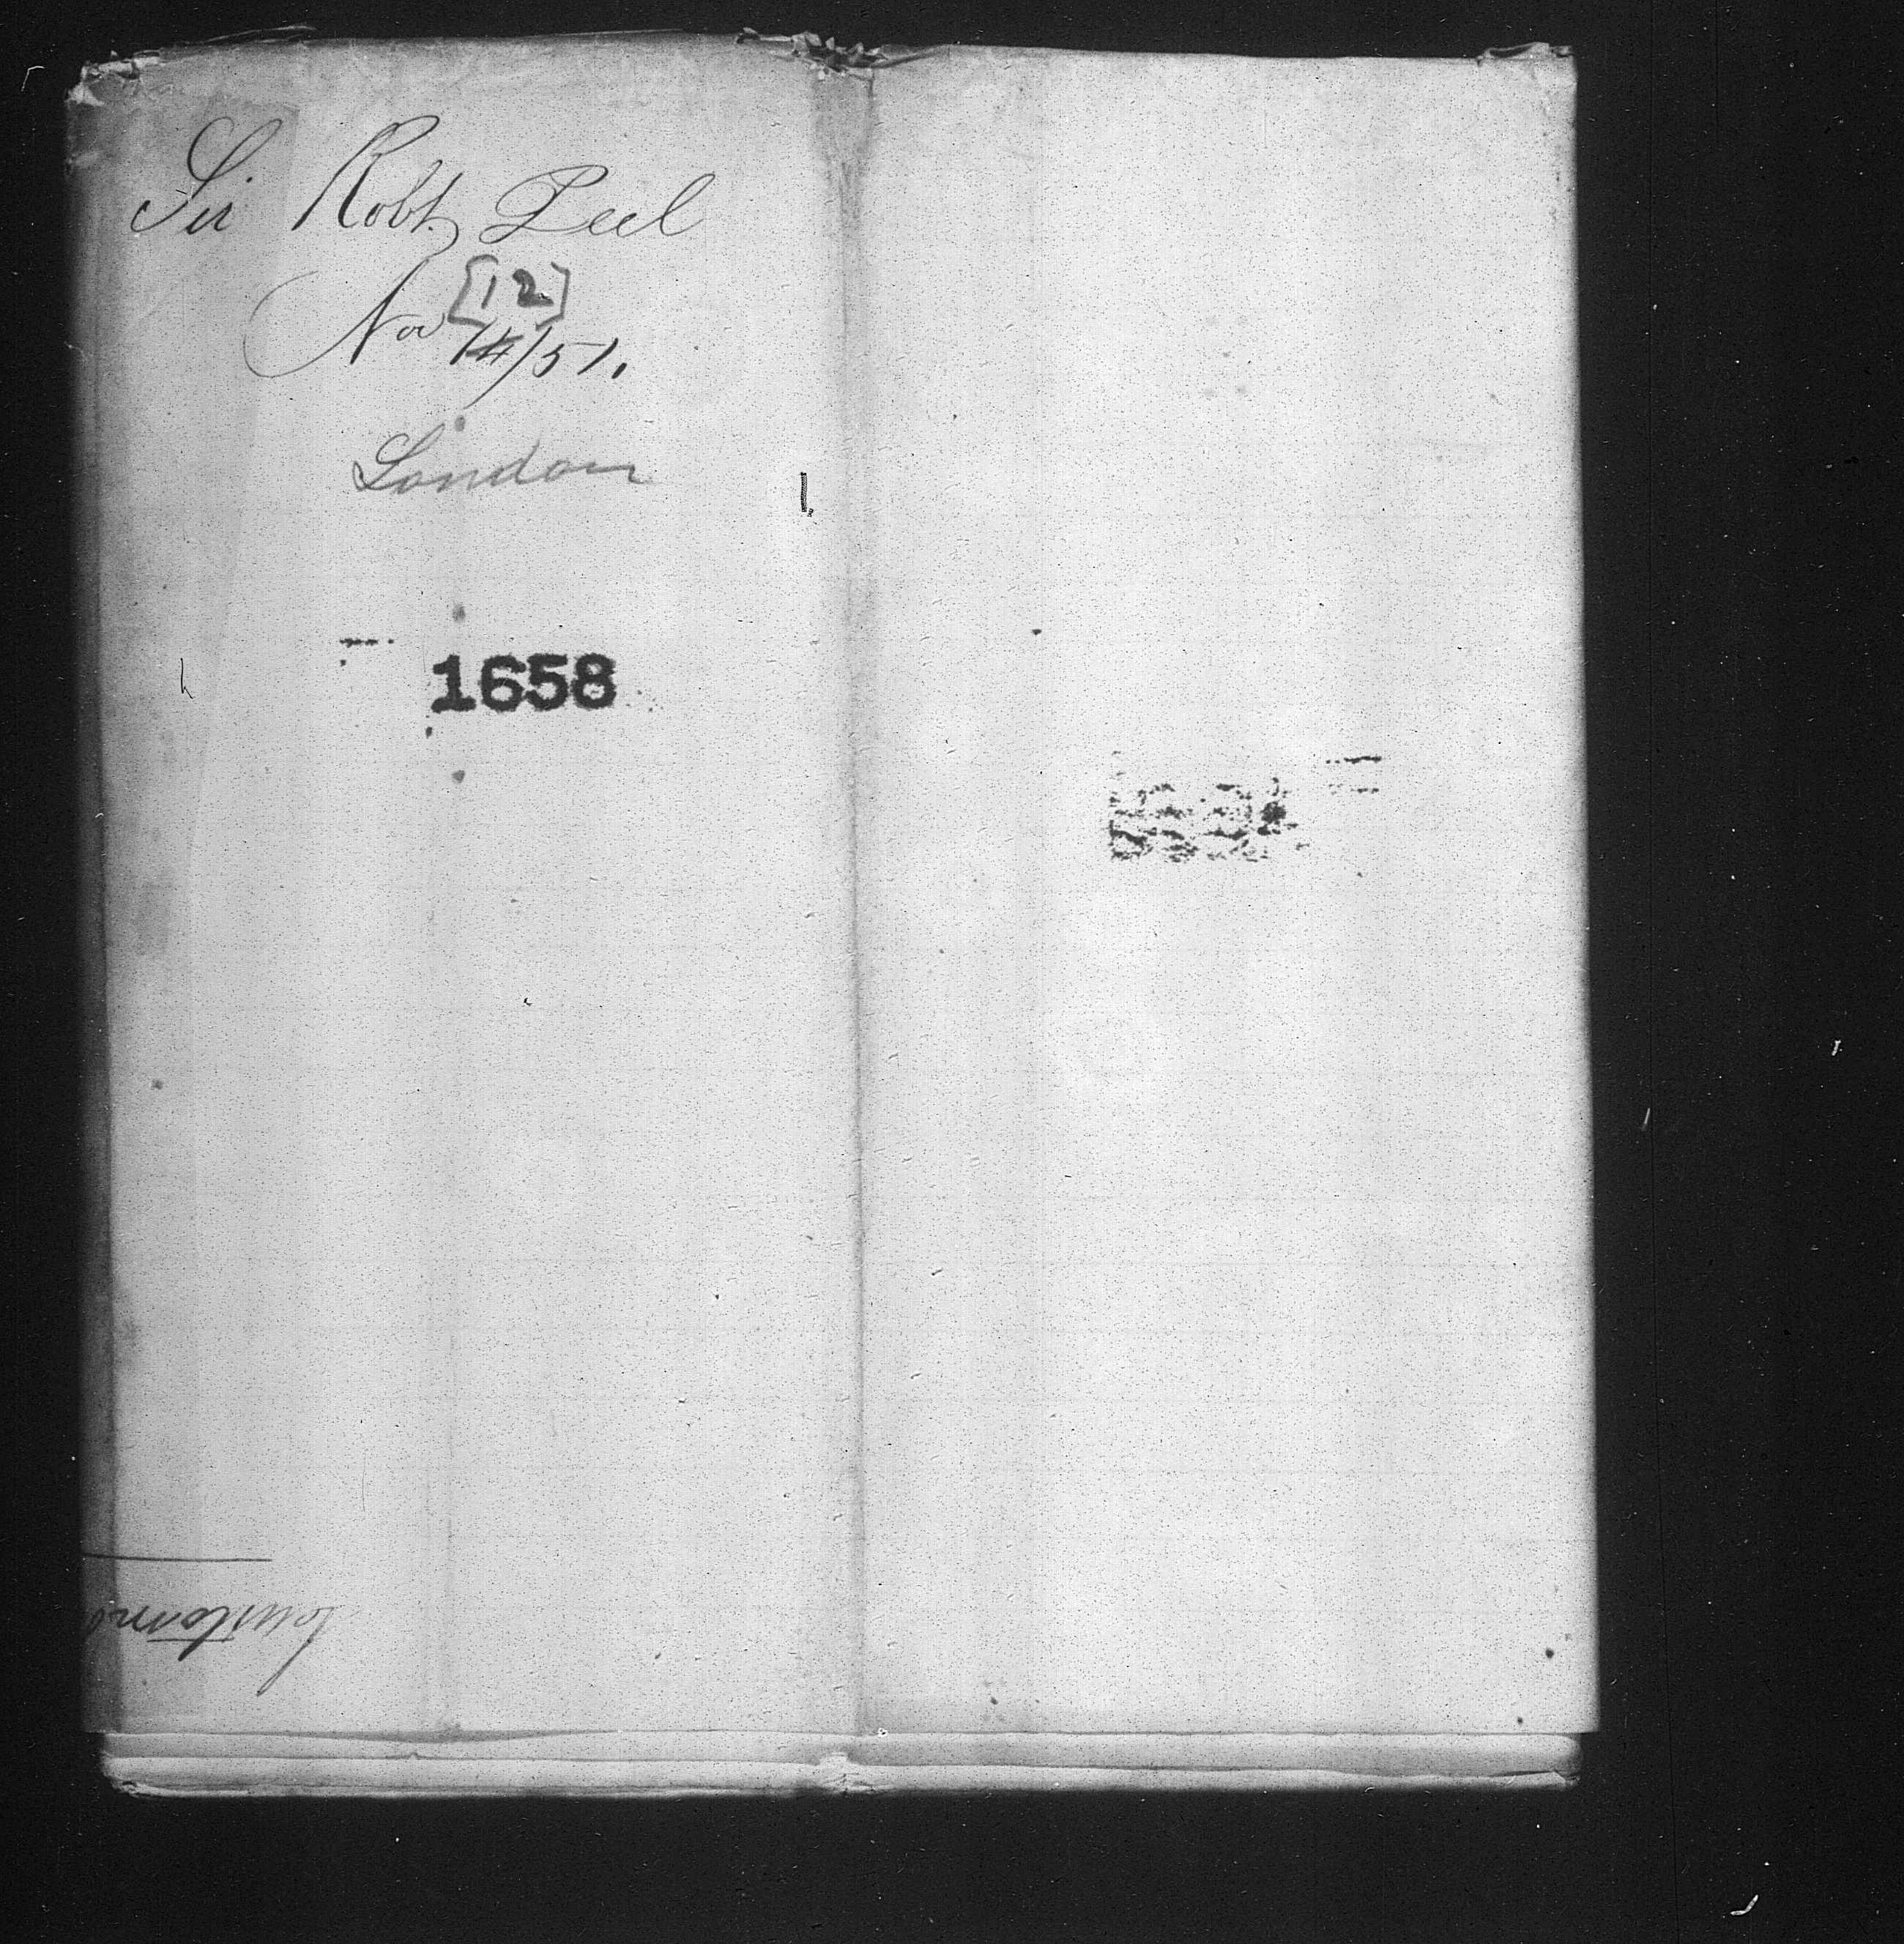 Sir Robt. Peel
[12]
Nov 14/51.
London
1658